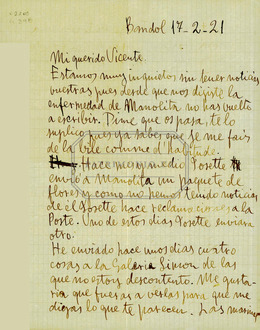 Bandol 17-2-21
Mi querido Vicente.
Estamos muy inquietos sin tener noticias
vuestras pues desde que nos dijiste la
enfermedad de Manolita no has vuelto
a escribir. Dime que os pasa, te lo
suplico pues ya sabes que je me fais
de la bile comme d'habitude.
Hace mes y medio Josette
envió a Manolita un paquete de
flores y como no hemos tenido noticias
de el Josette hace reclamaciones a la
Poste. Uno de estos dias Josette enviara
otro.
He enviado hace unos dias cuatro
cosas a la Galeria Simon de las
que no estoy descontento. Me gusta-
ria que fueras a verlas para que me
digas lo que te parecen. Las